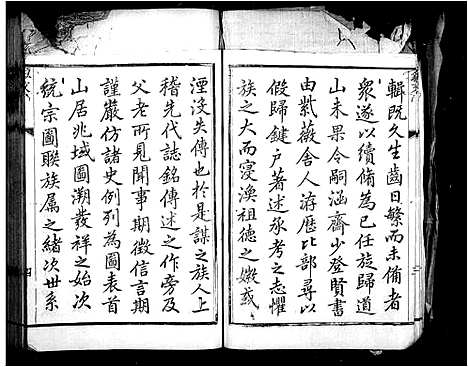 輯既久生齒日繁而未備者
衆遂以續脩為已任旋歸道
山未果令嗣涵齋少登賢書
由紫薇舍人游歷比部尋以
假歸鍵户著述承考之志懼
族之大而寖渙祖德之媺或
湮没失傳也於是謀之族人上
稽先代誌銘傳述之作旁及
父老所見聞事期徵信言期
謹嚴仿諸史例列為圖表首
山居兆域圖溯發祥之始次
統宗圖聯族属之緒次世系